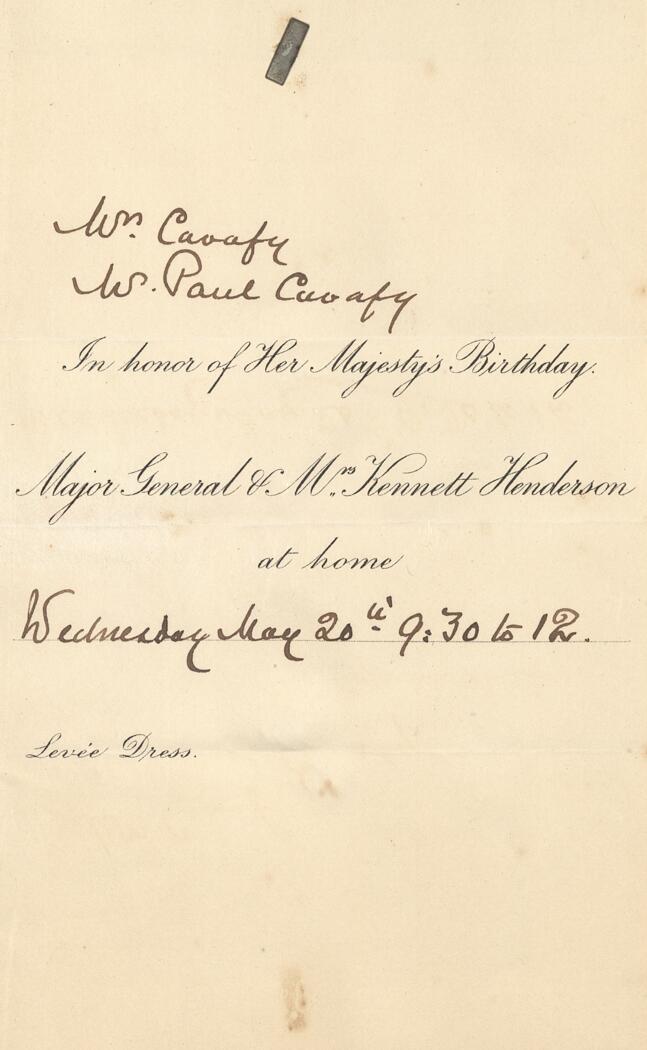 Mrs. Cavafy
Mr. Paul Cavafy
In honor of Her Majesty's Birthday.
Major General & Mrs Kennett Henderson
at home
Wednesday May 20th 9:30 to 12.
Levée Dress.